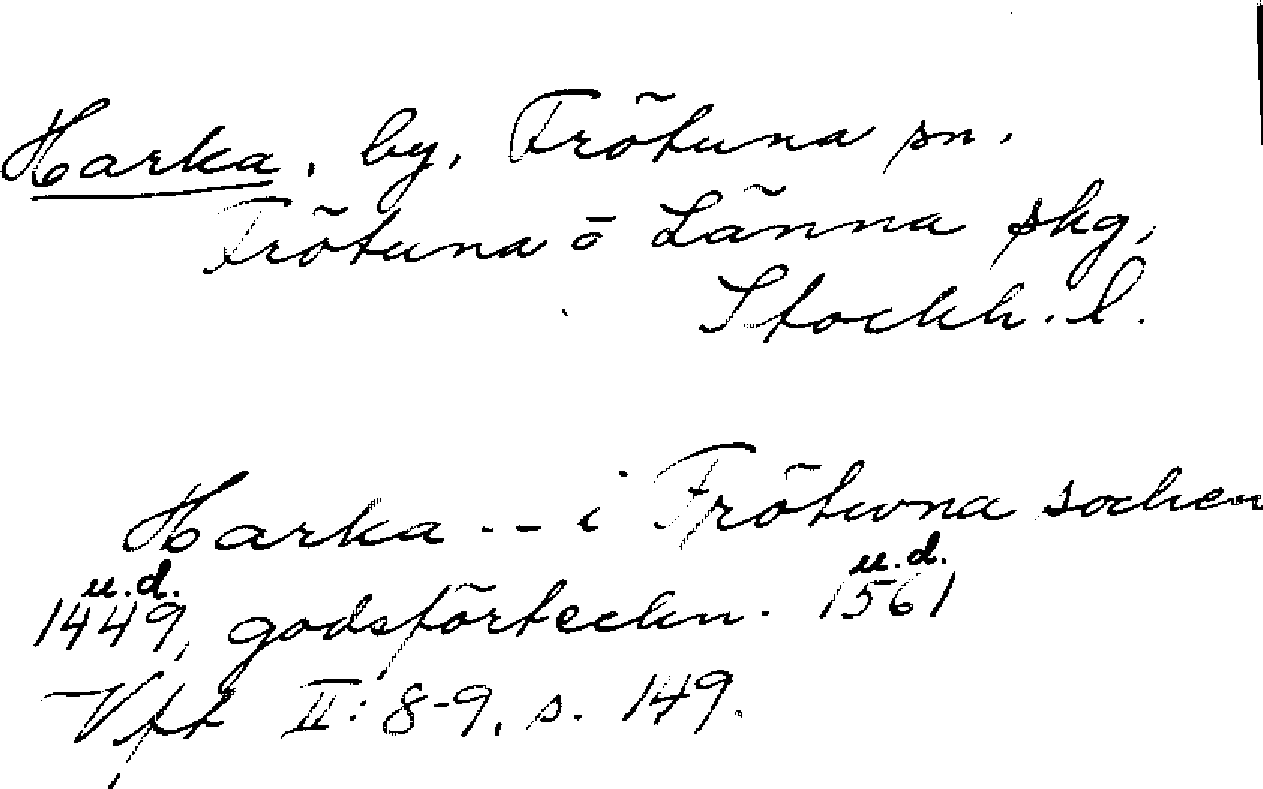 Harka, by, Frötuna sn.
Frötuna o Länna skg,
Stockh. l.
Harka -- i Frötwna socken
u.d. u.d.
1449, godsförteckn. 1561
Vft II: 8-9, s. 149.